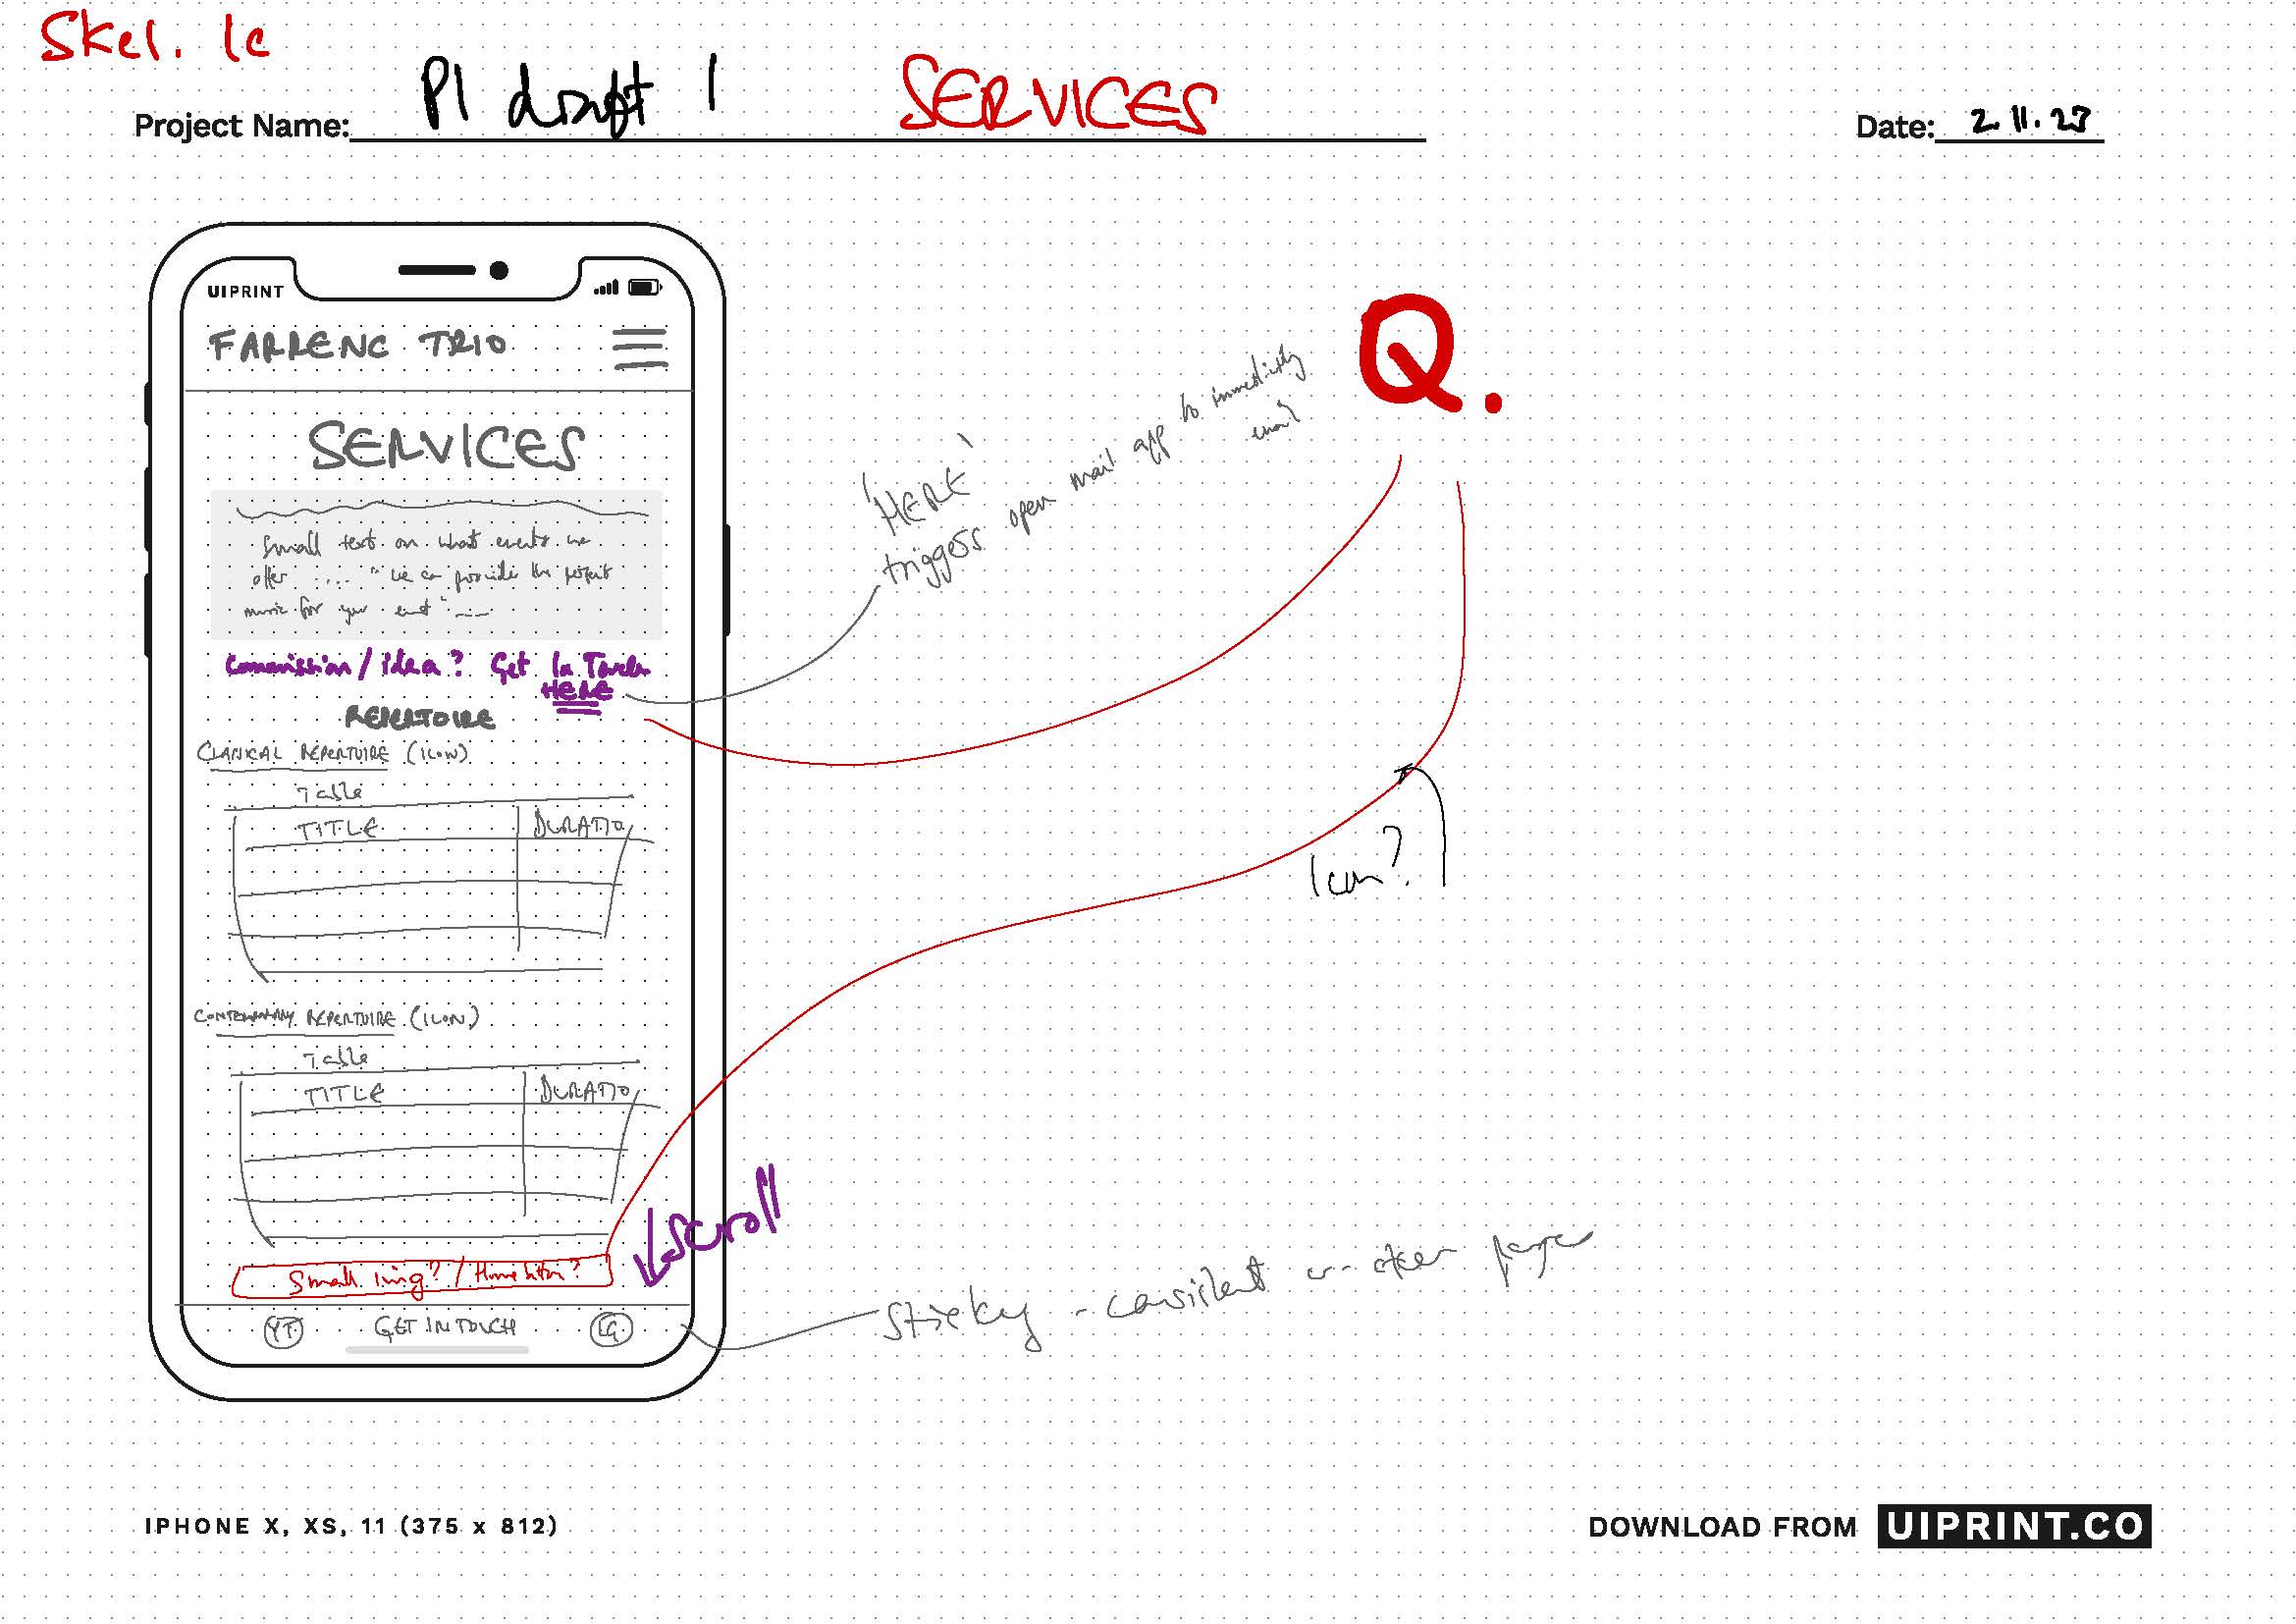 Skel. 1c
Project Name: P1 draft 1 SERVICES
Date: 2.11.23
UIPRINT
FARRENC TRIO
SERVICES
Small text on what events we
offer .... "we can provide the perfect
music for your event" ---
Commission/idea? Get In Touch
HERE
REPERTOIRE
CLASSICAL REPERTOIRE (ICON)
Table
TITLE DURATIO
CONTEMPORARY REPERTOIRE (ICON)
Table
TITLE DURATIO
Small img? / Home
YT GET IN TOUCH
↓ scroll
'HERE'
triggers open mail app to immediately
email
Q.
Icon?
Sticky - consistent on other pages
IPHONE X, XS, 11 (375 x 812)
DOWNLOAD FROM UIPRINT.CO